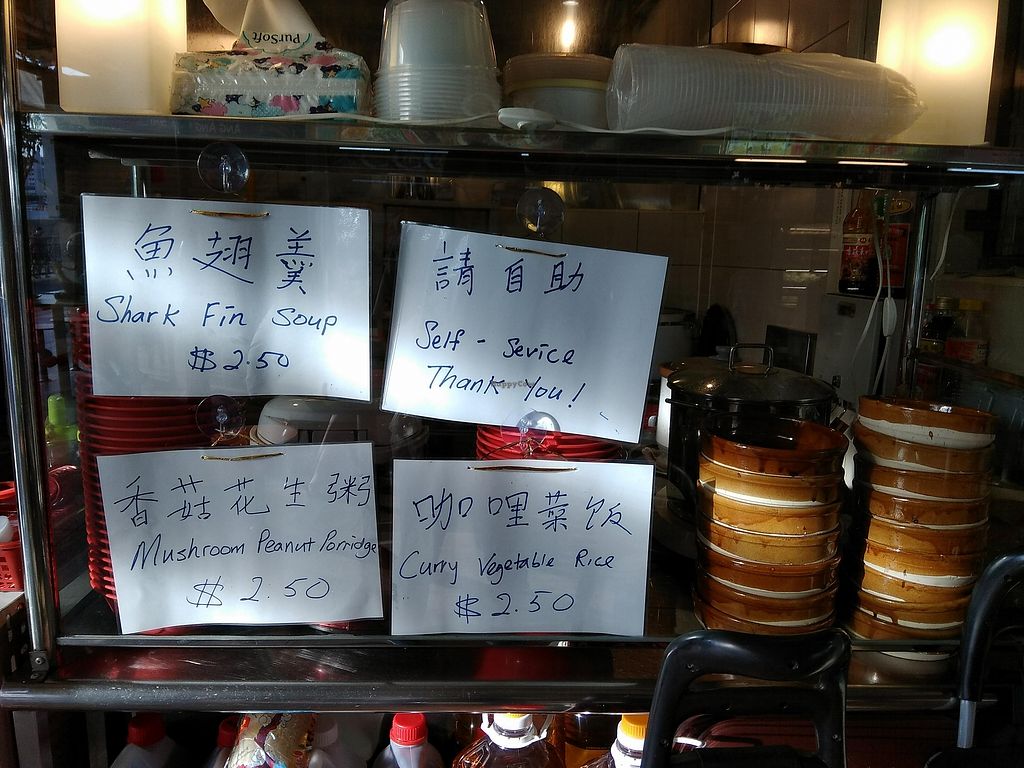 PurSoft
魚翅羹
Shark Fin Soup
$2.50
請自助
Self - Sevice
Thank You!
香菇花生粥
Mushroom Peanut Porridge
$2.50
咖哩菜饭
Curry Vegetable Rice
$2.50